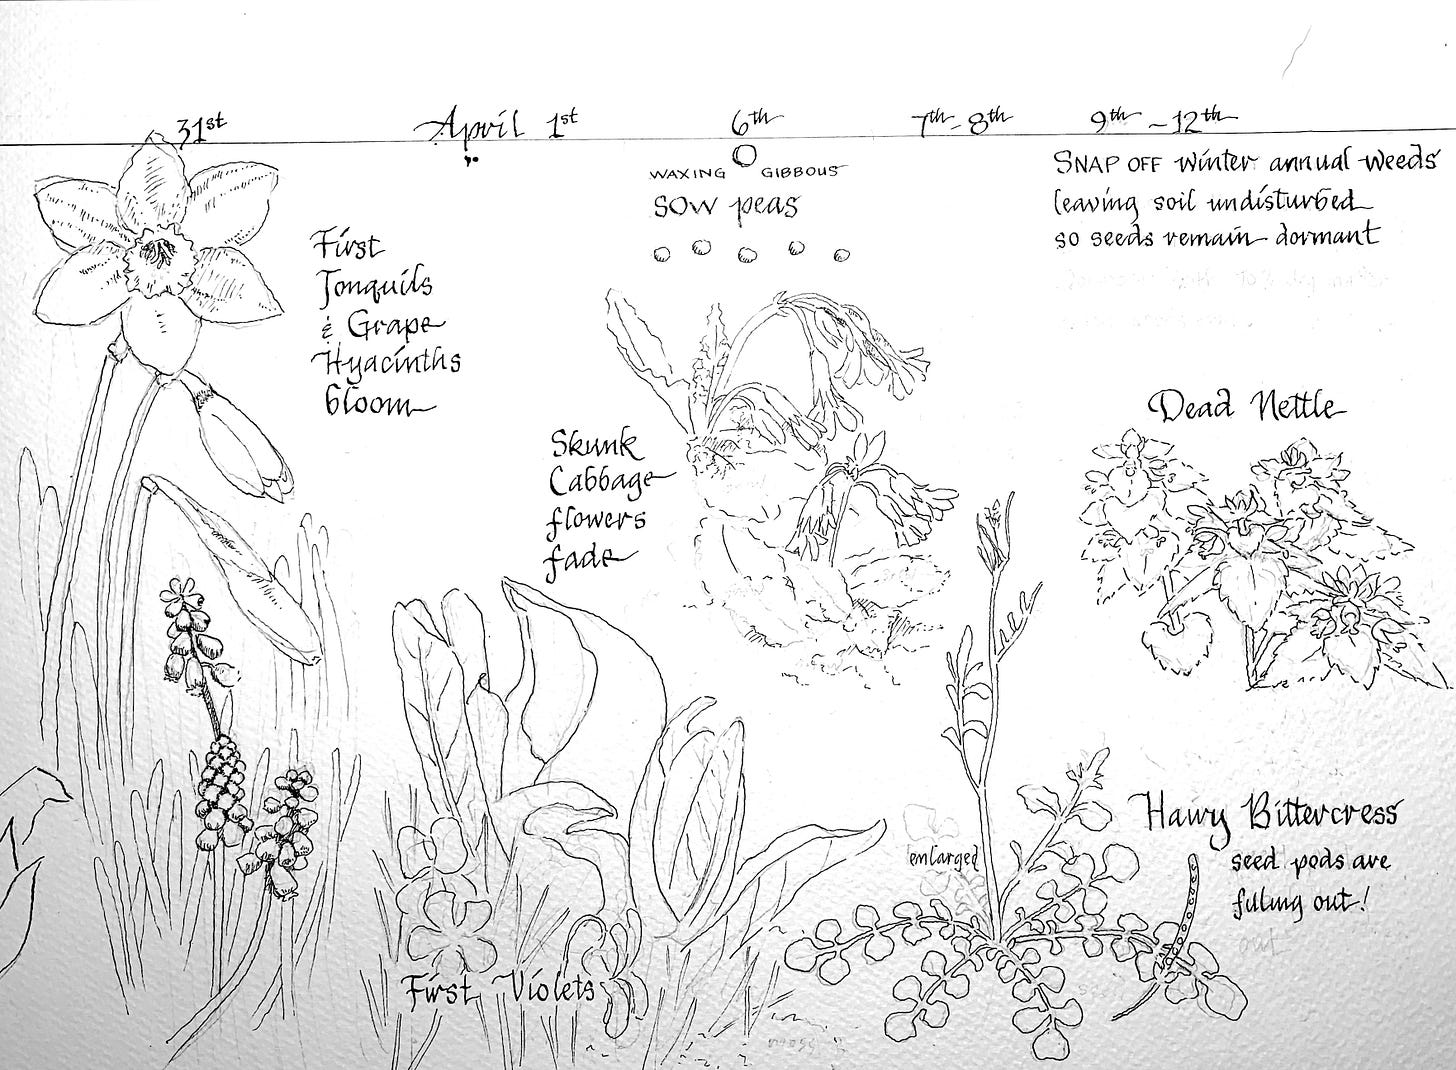 31st
April 1st
6th
7th - 8th
9th - 12th
WAXING GIBBOUS
SOW peas
SNAP OFF winter annual weeds
leaving soil undisturbed
so seeds remain dormant
First
Jonquils
& Grape
Hyacinths
bloom
Skunk
Cabbage
flowers
fade
Dead Nettle
Hairy Bittercress
seed pods are
filling out!
enlarged
out
First Violets